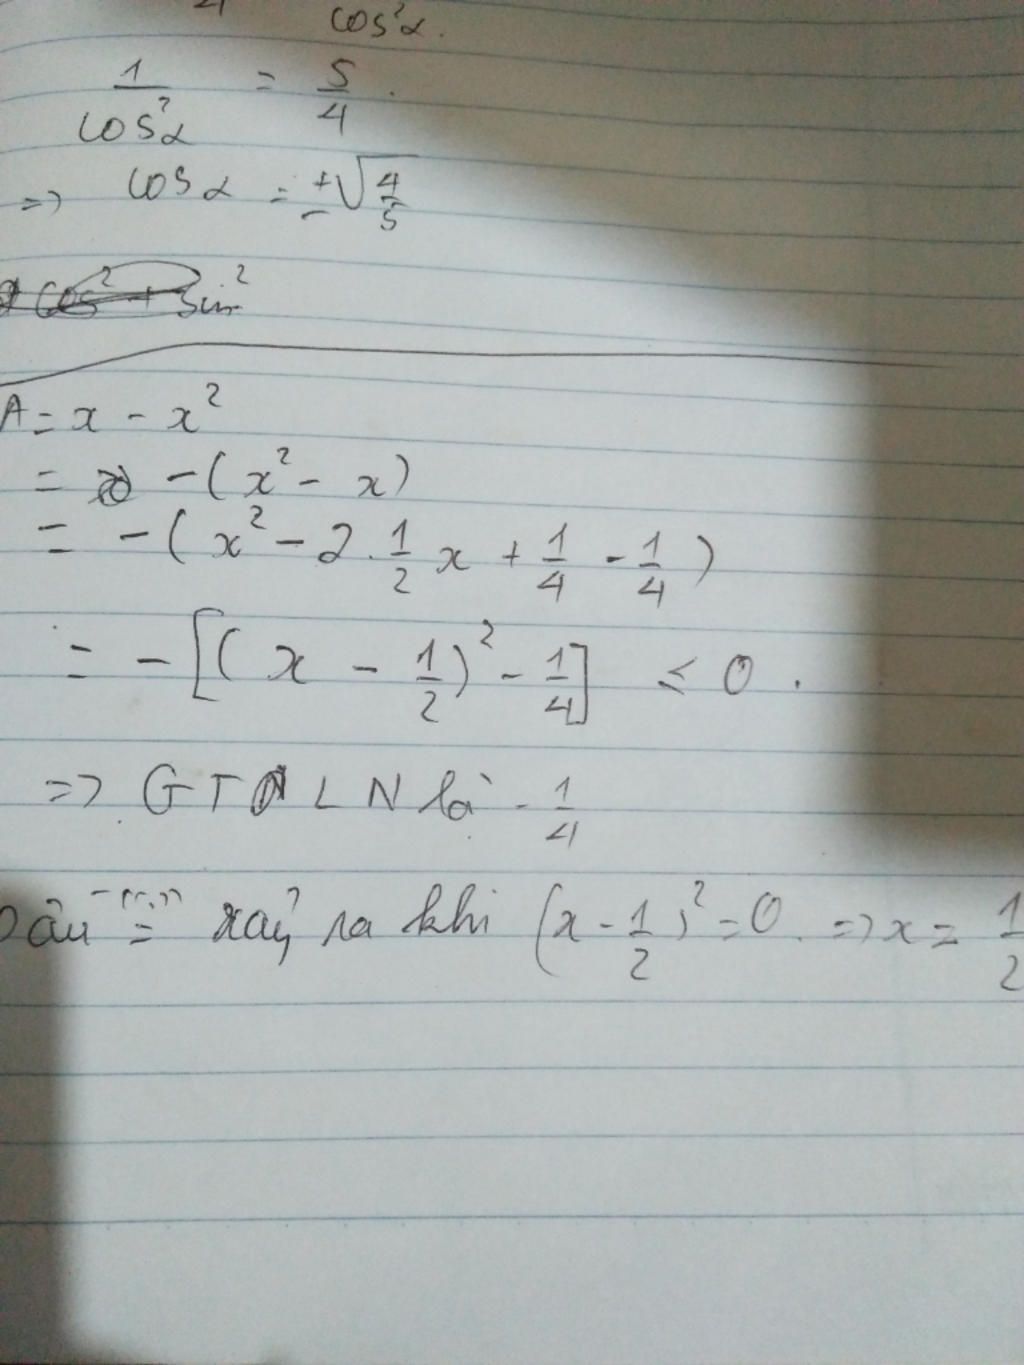 cos²α.
1/cos²α = 5/4.
=> cos α = ±√(4/5)
cos² + sin²
A = x - x²
= -(x² - x)
= -(x² - 2.1/2 x + 1/4 - 1/4)
= -[(x - 1/2)² - 1/4] ≤ 0.
=> GTLN là -1/4
Dấu "=" xảy ra khi (x - 1/2)² = 0. => x = 1/2